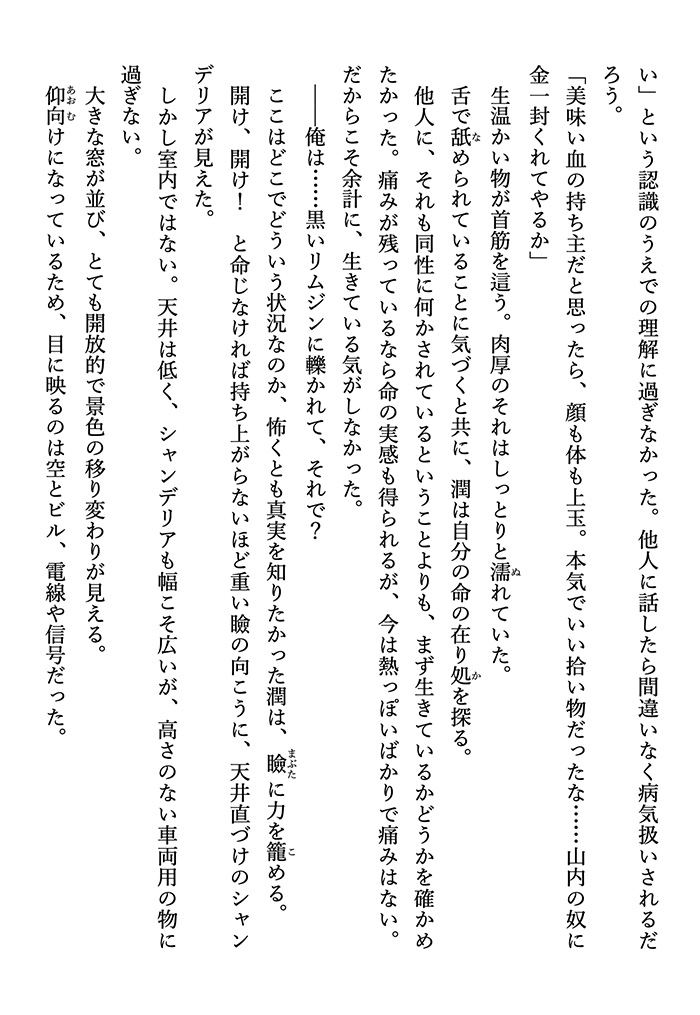 い」という認識のうえでの理解に過ぎなかった。他人に話したら間違いなく病気扱いされるだ
ろう。
「美味い血の持ち主だと思ったら、顔も体も上玉。本気でいい拾い物だったな……山内の奴に
金一封くれてやるか」
生温かい物が首筋を這う。肉厚のそれはしっとりと濡れていた。
舌で舐められていることに気づくと共に、潤は自分の命の在り処を探る。
他人に、それも同性に何かされているということよりも、まず生きているかどうかを確かめ
たかった。痛みが残っているなら命の実感も得られるが、今は熱っぽいばかりで痛みはない。
だからこそ余計に、生きている気がしなかった。
――俺は……黒いリムジンに轢かれて、それで？
ここはどこでどういう状況なのか、怖くとも真実を知りたかった潤は、瞼に力を籠める。
開け、開け！　と命じなければ持ち上がらないほど重い瞼の向こうに、天井直づけのシャン
デリアが見えた。
しかし室内ではない。天井は低く、シャンデリアも幅こそ広いが、高さのない車両用の物に
過ぎない。
大きな窓が並び、とても開放的で景色の移り変わりが見える。
仰向けになっているため、目に映るのは空とビル、電線や信号だった。